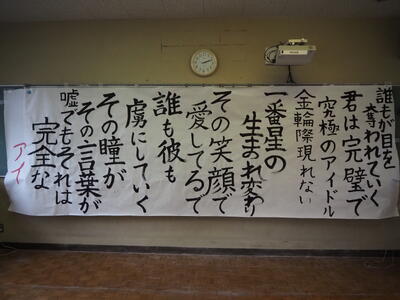 誰もが目を
奪われていく
君は完璧で
究極のアイドル
金輪際現れない
一番星の
生まれ変わり
その笑顔で
愛してるで
誰も彼も
虜にしていく
その瞳が
その言葉が
嘘でもそれは
完全な
アイ